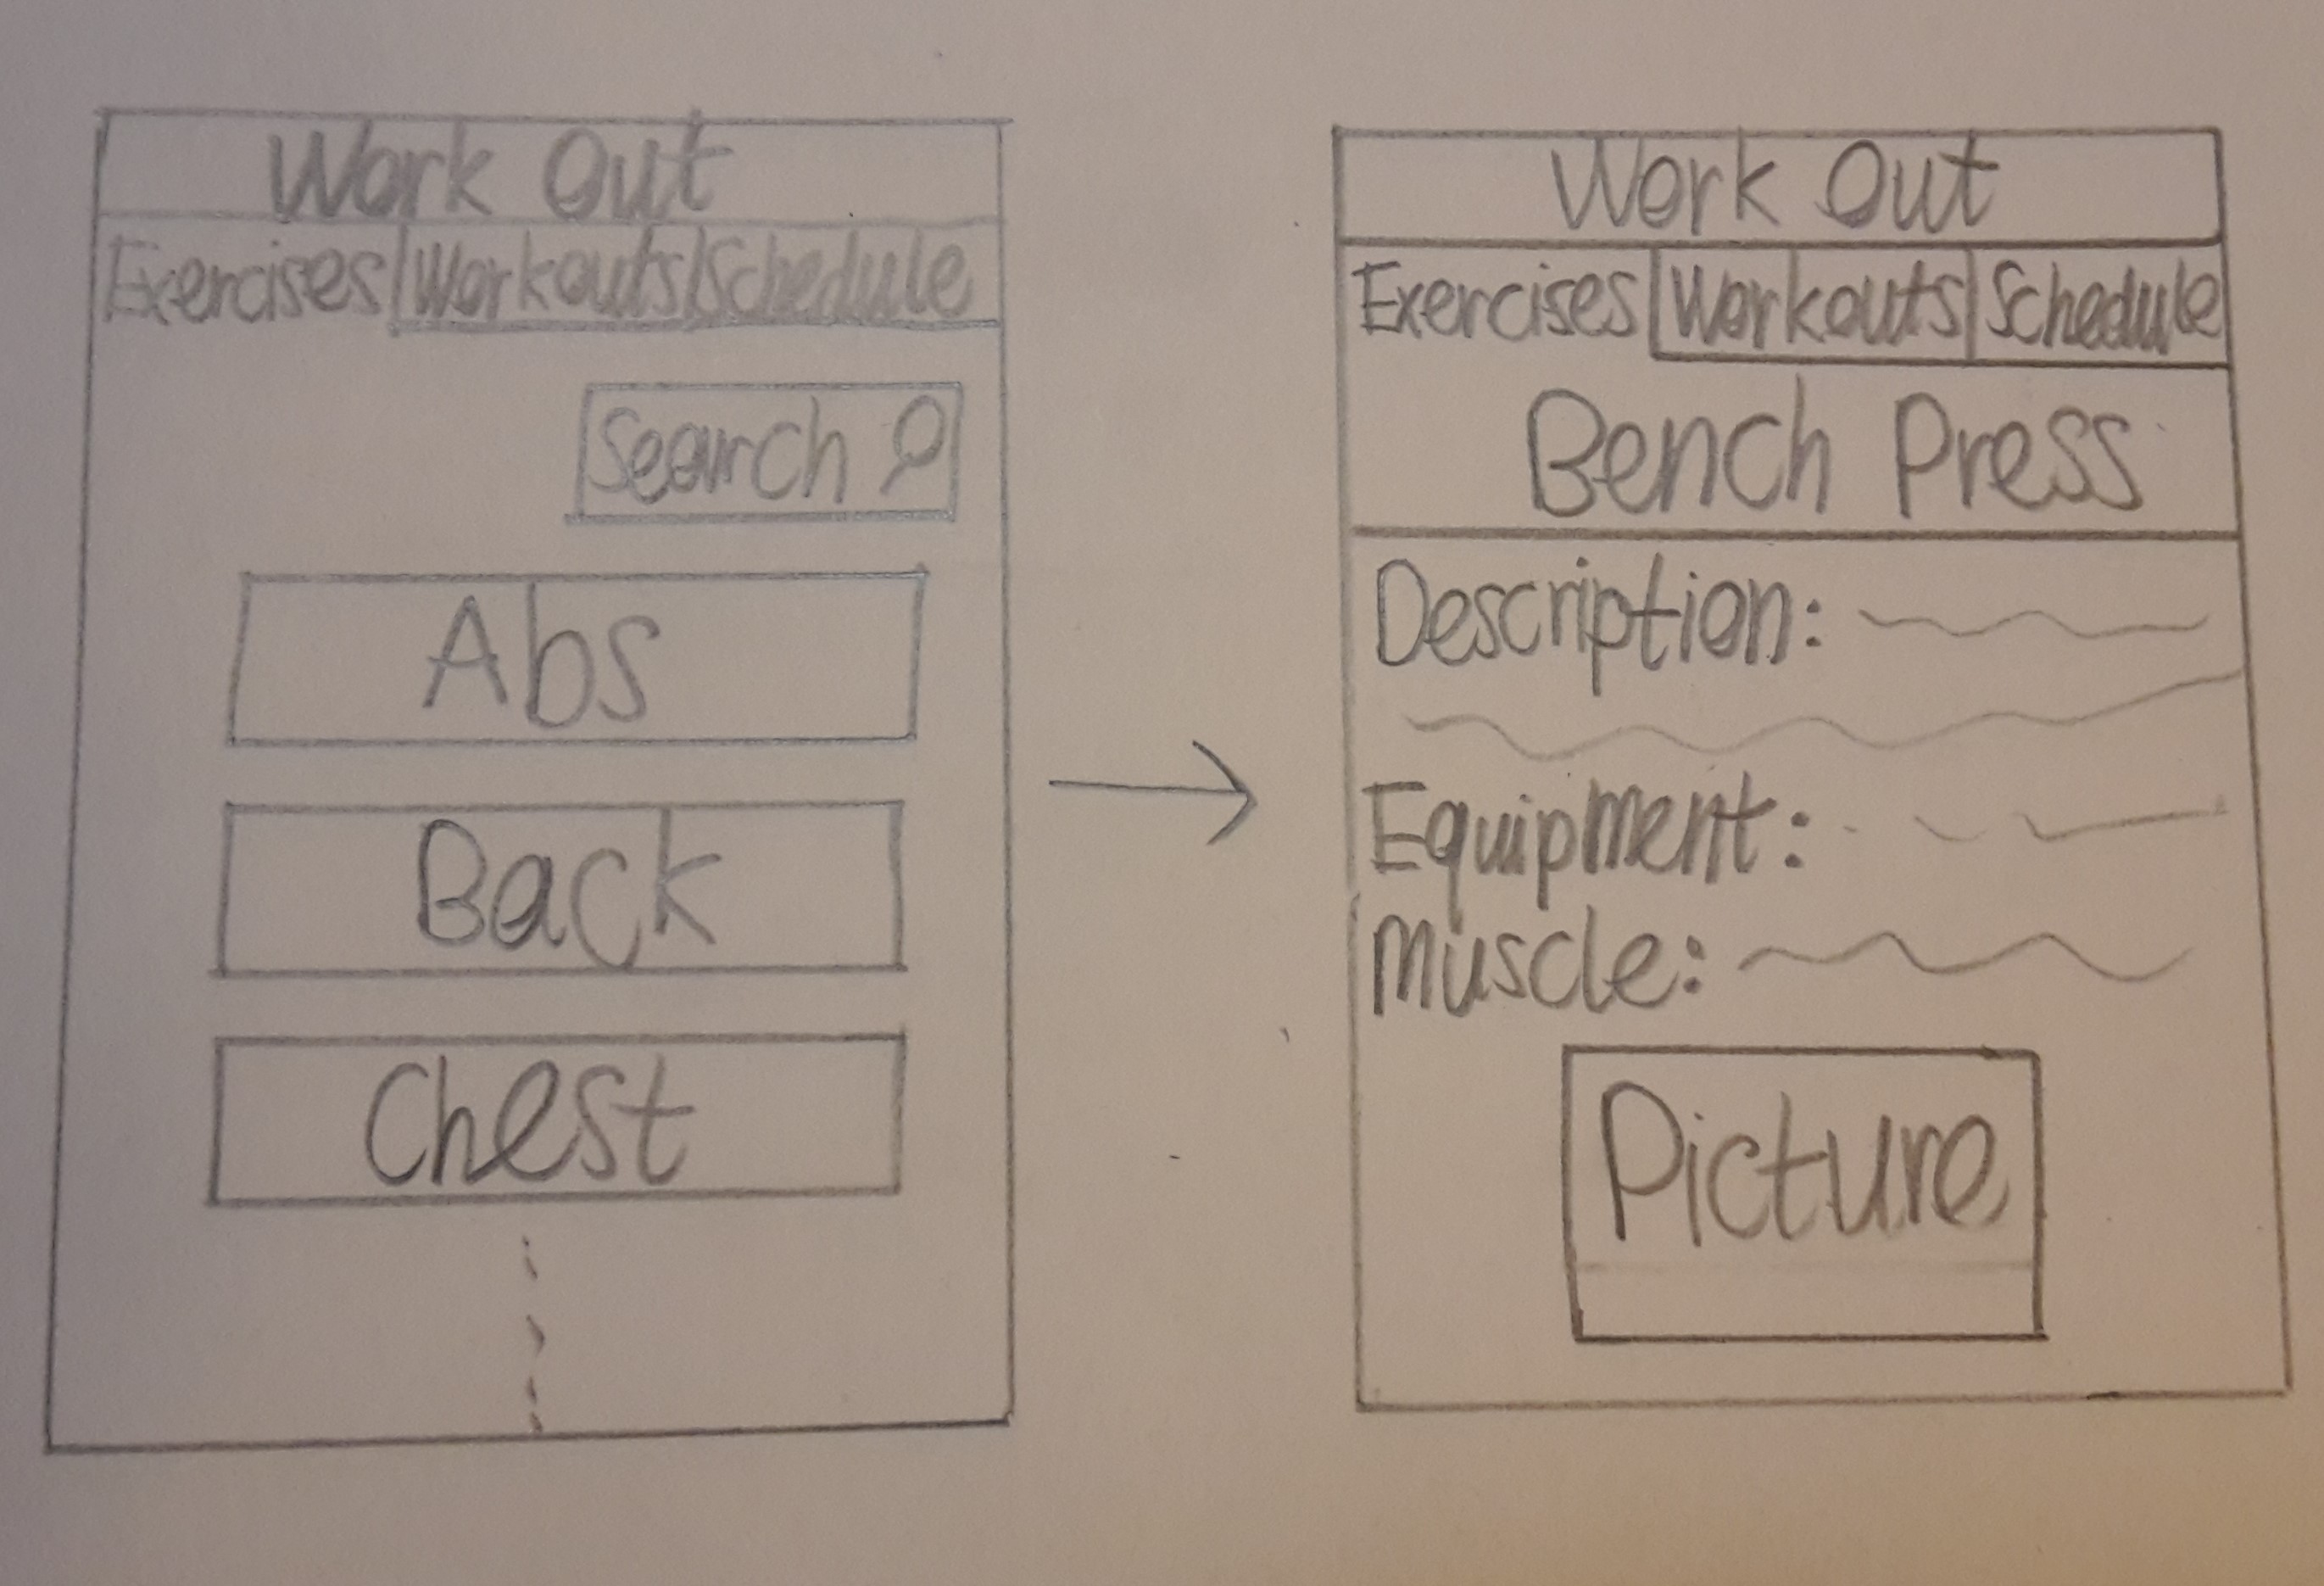 Work Out
Exercises Workouts Schedule
Search
Abs
Back
Chest
Work Out
Exercises Workouts Schedule
Bench Press
Description:
Equipment:
Muscle:
Picture